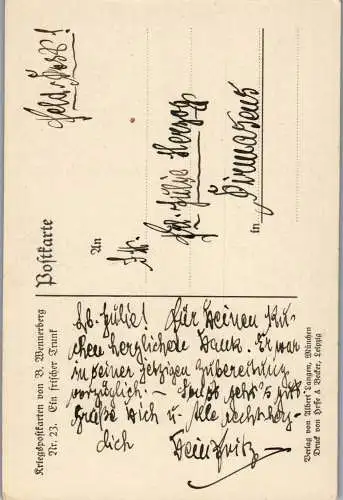 Kriegspostkarten von B. Wennerberg
Nr. 23. Ein frischer Trunk
Postkarte
Feld-Post!
An
Frl. Julie Herzog
in Pirmasens
Lb. Julie! Für Deinen Ku-
chen herzlichen Dank. Er war
in seiner jetzigen Zubereitung
vorzüglich. – Sonst geht's gut
Grüße Dich u. Alle recht herz-
lich
Dein Fritz
Verlag von Albert Langen, München
Druck von Hesse & Becker, Leipzig